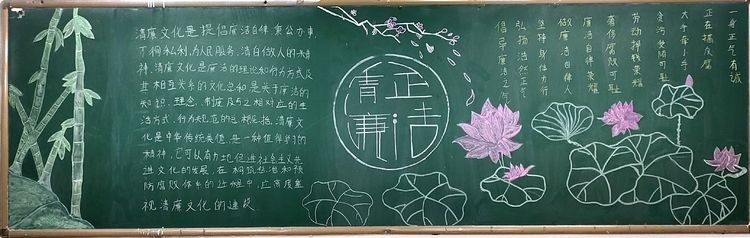 清廉文化是提倡廉洁自律,秉公办事,
不徇私利,为人民服务,清白做人的精
神。清廉文化是廉洁的理论和行为方式及
其相互关系的文化总和,是关于廉洁的
知识、理念、制度及与之相对应的生
活方式、行为规范的总概括。清廉文
化是中华传统美德,是一种值得学习的
精神,它可以有力地促进社会主义先
进文化的发展,在构筑惩治和预
防腐败体系的过程中,应高度重
视清廉文化的建设
清正
廉洁
一身正气有诚
正在拒贪腐
大手牵小手
贪污受贿可耻
劳动挣钱荣耀
奢侈腐败可耻
廉洁自律荣耀
做廉洁自律人
坚持身体力行
弘扬浩然正气
倡导廉洁之气